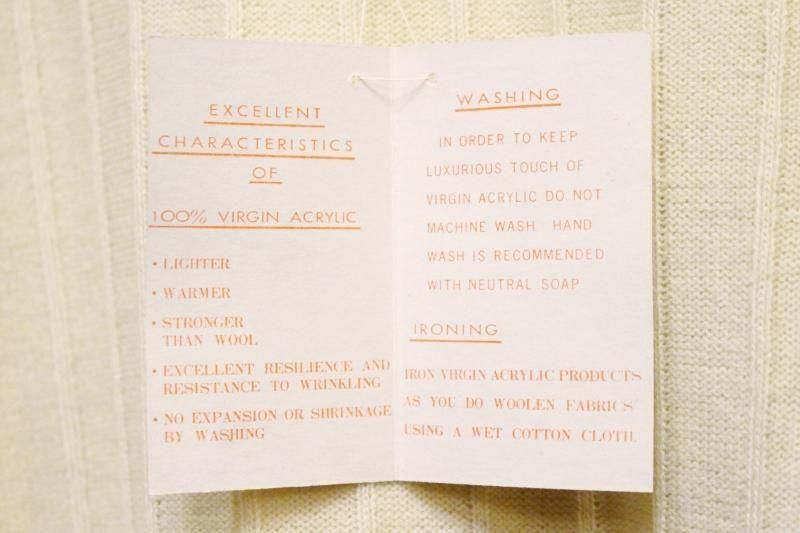 EXCELLENT
CHARACTERISTICS
OF
100% VIRGIN ACRYLIC
• LIGHTER
• WARMER
• STRONGER
THAN WOOL
• EXCELLENT RESILIENCE AND
RESISTANCE TO WRINKLING
• NO EXPANSION OR SHRINKAGE
BY WASHING
WASHING
IN ORDER TO KEEP
LUXURIOUS TOUCH OF
VIRGIN ACRYLIC DO NOT
MACHINE WASH HAND
WASH IS RECOMMENDED
WITH NEUTRAL SOAP
IRONING
IRON VIRGIN ACRYLIC PRODUCTS
AS YOU DO WOOLEN FABRICS
USING A WET COTTON CLOTH.